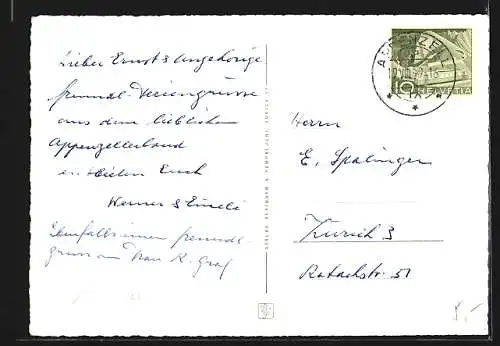 Lieber Ernst & Angehörige
freundl. Feriengrüsse
aus dem lieblichen
Appenzellerland
entbieten Euch
Werner & Emeli
Ebenfalls einen freundl.
gruss an Frau K. Graf
APPENZELL
10
HELVETIA
Herrn
E. Spalinger
Zürich 3
Rotachstr. 51
8.-